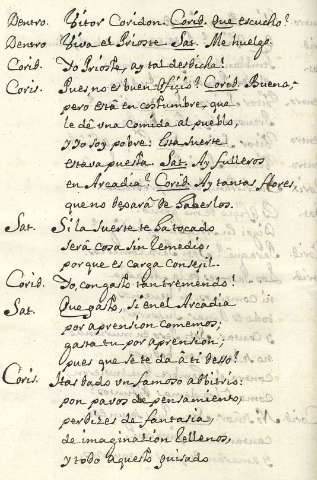 Dentro. Vitor Coridon. Corid. Que escucho?
Dentro Viva el Prioste Sat. Me huelgo.
Corid. Yo Prioste, ay tal desdicha!
Coris. Pues no es buen Oficio? Corid. Buena;
pero està en costumbre, que
le dè vna Comida al pueblo,
y Yo soy pobre: Esta suerte
estava puesta. Sat. Ay fulleros
en Arcadia? Corid. Ay tantas flores
que no deparà de haberlos.
Sat. Si la suerte te ha tocado
serà cosa sin Remedio;
porque es carga Consejil.
Corid. Yo, con gasto tan tremendo!
Sat. Que gasto, si en el Arcadia
por aprension comemos;
gasta tu por aprension;
pues que se te da à ti desso?
Coris. Has dado vn famoso arbitrio:
pon pavos de pensamiento,
perdizes de fantasia,
de imaginazion Rellenos,
y todo aquesto guisado